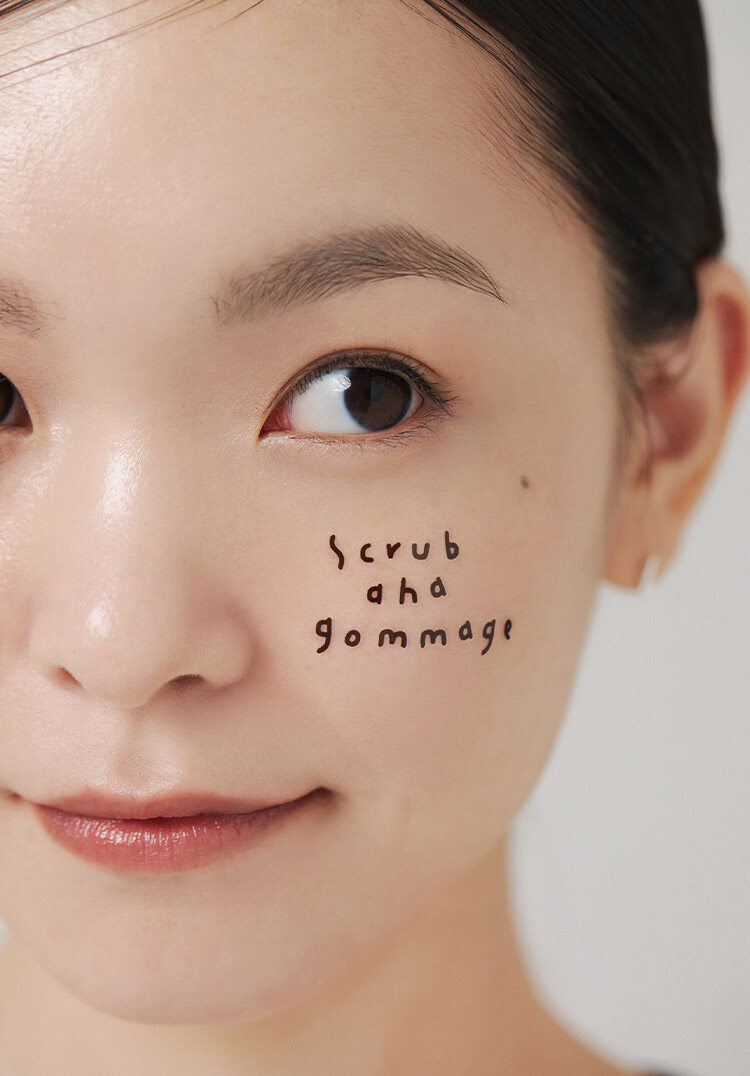 Scrub
aha
gommage